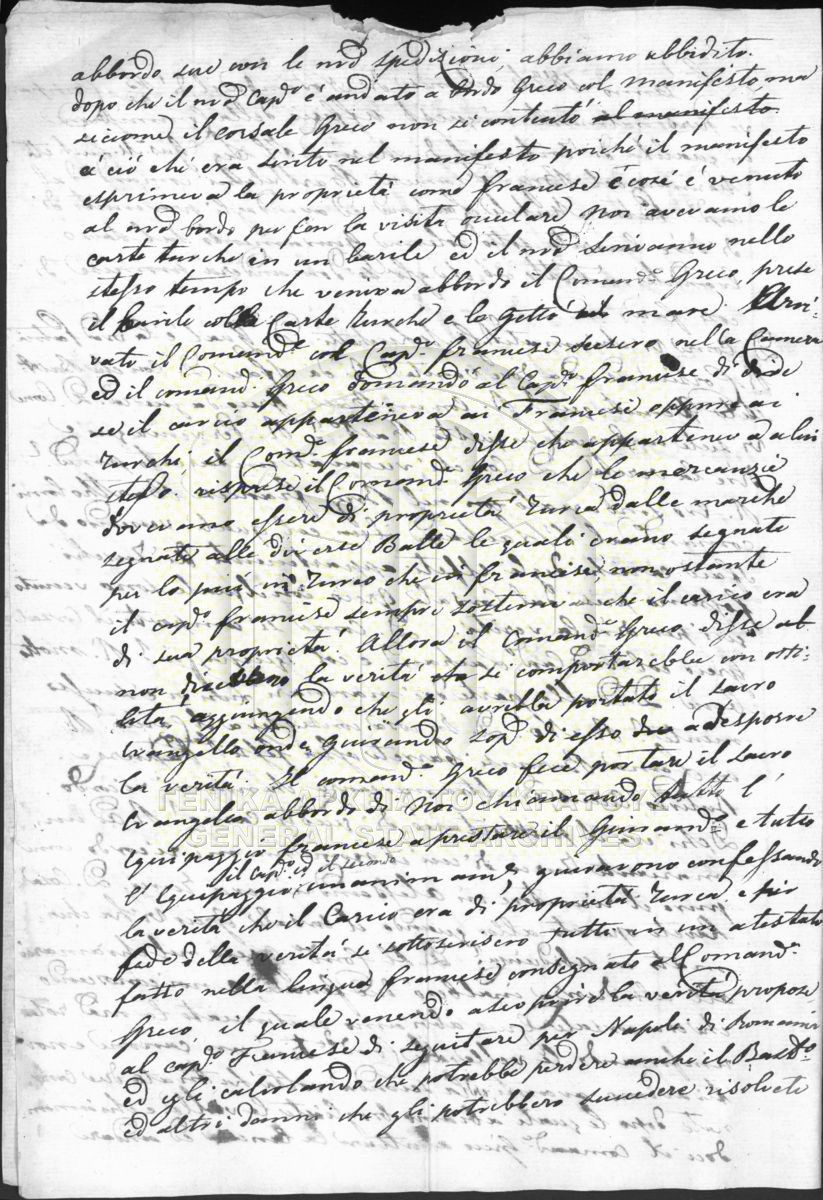 abbordo suo con le nrẽ spedizioni, abbiamo ubbidito.
dopo che il nrõ Capõ è andato a bordo Greco col manifesto, ma
siccome il corsale Greco non si contentò al manifesto
a ciò chè era scrito nel manifesto poichè il manifesto
esprimeva la proprietà come francese e così è venuto
al nrõ bordo per far la visita oculare Noi avevamo le
carte turche in un barile ed il nrõ scrivano nello
stesso tempo che veniva abbordo il Comandẽ Greco, prese
il barile colle Carte Turche e lo gettò al mare Arri-
vato il Comandẽ col Capõ francese scesero nella Camera
ed il comandẽ Greco domandò al Capõ francese di dirle
se il carico apparteneva ai Francesi oppure ai
Turchi il Comẽ francese disse che apparteneva a lui
stesso. risprese il Comandẽ Greco che le mercanzie
dovevano essere di proprietà Turca dalle marche
segnate alle diverse Balle le quali erano segnate
per lo più in Turco che in francese, non ostante
il capõ francese sempre sosteneva che il carico era
di sua proprietà. Allora il Comandẽ Greco disse al
non la verità si comportarebbe con osti-
lità, aggiungendo che gli avrebbe portato il sacro
evangello onde giurando sopã di esso adesporre
la verità. Il comandẽ Greco fece portare il sacro
evangelio abbordo di Noi chiamando tutto l'
Equipaggio francese aprestare il Giuramõ e tutto
il Capõ ed il secondo
l'Equipaggio unanimamẽ giuravono confessando
la verità che il Carico era di proprietà Turca e per
fede della verità si sottoscrisero tutti in un atestato
fatto nella lingua francese consegnato al Comandẽ
Greco il quale venendo a scoprire la verità propose
al capõ Francese di seguitare per Napoli di Romania
ed egli calcolando che potrebbe perdere anche il Bastõ
ed altri danni che gli potrebbero succedere risolvete
ΓΕΝΙΚΑ ΑΡΧΕΙΑ ΤΟΥ ΚΡΑΤΟΥΣ
GENERAL STATE ARCHIVES